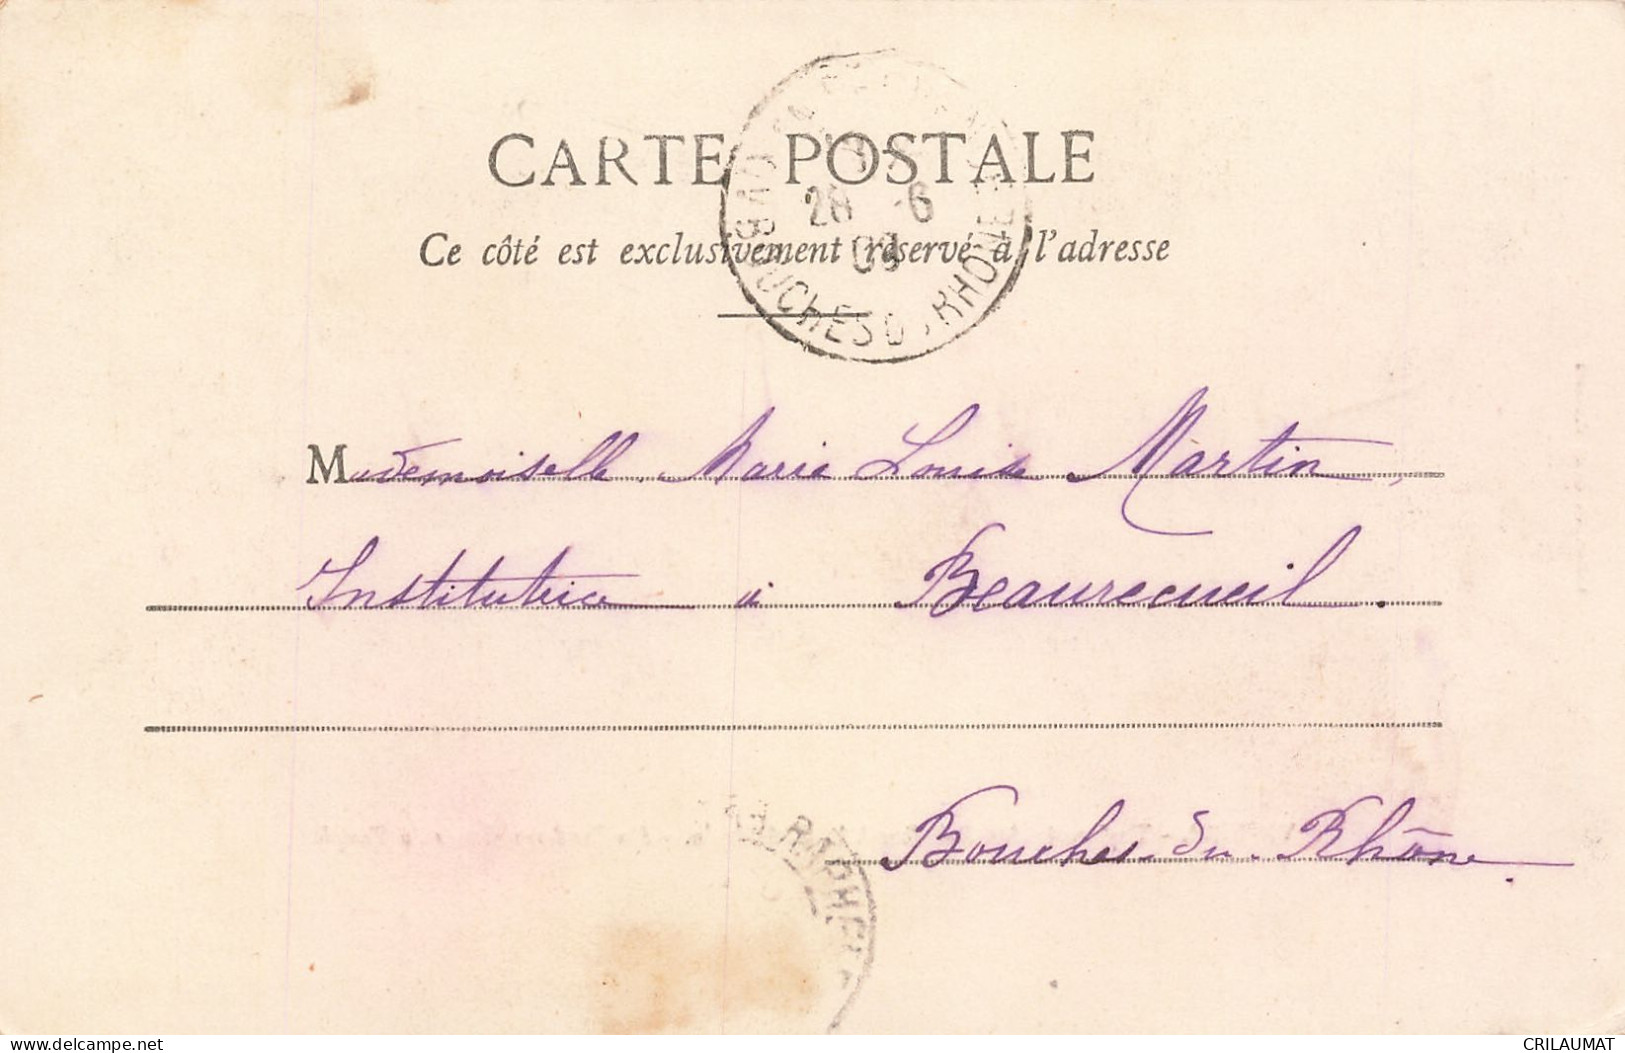 CARTE POSTALE
Ce côté est exclusivement réservé à l'adresse
BOUCHES DU RHONE
28 -6
03
Mademoiselle Marie Louise Martin,
Institutrice à Beaurecueil.
Bouches-du-Rhône.
RAPHEL
https://www.delcampe.net
CRILAUMAT